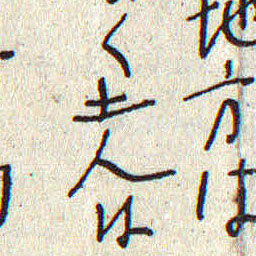 地方は
く老人は